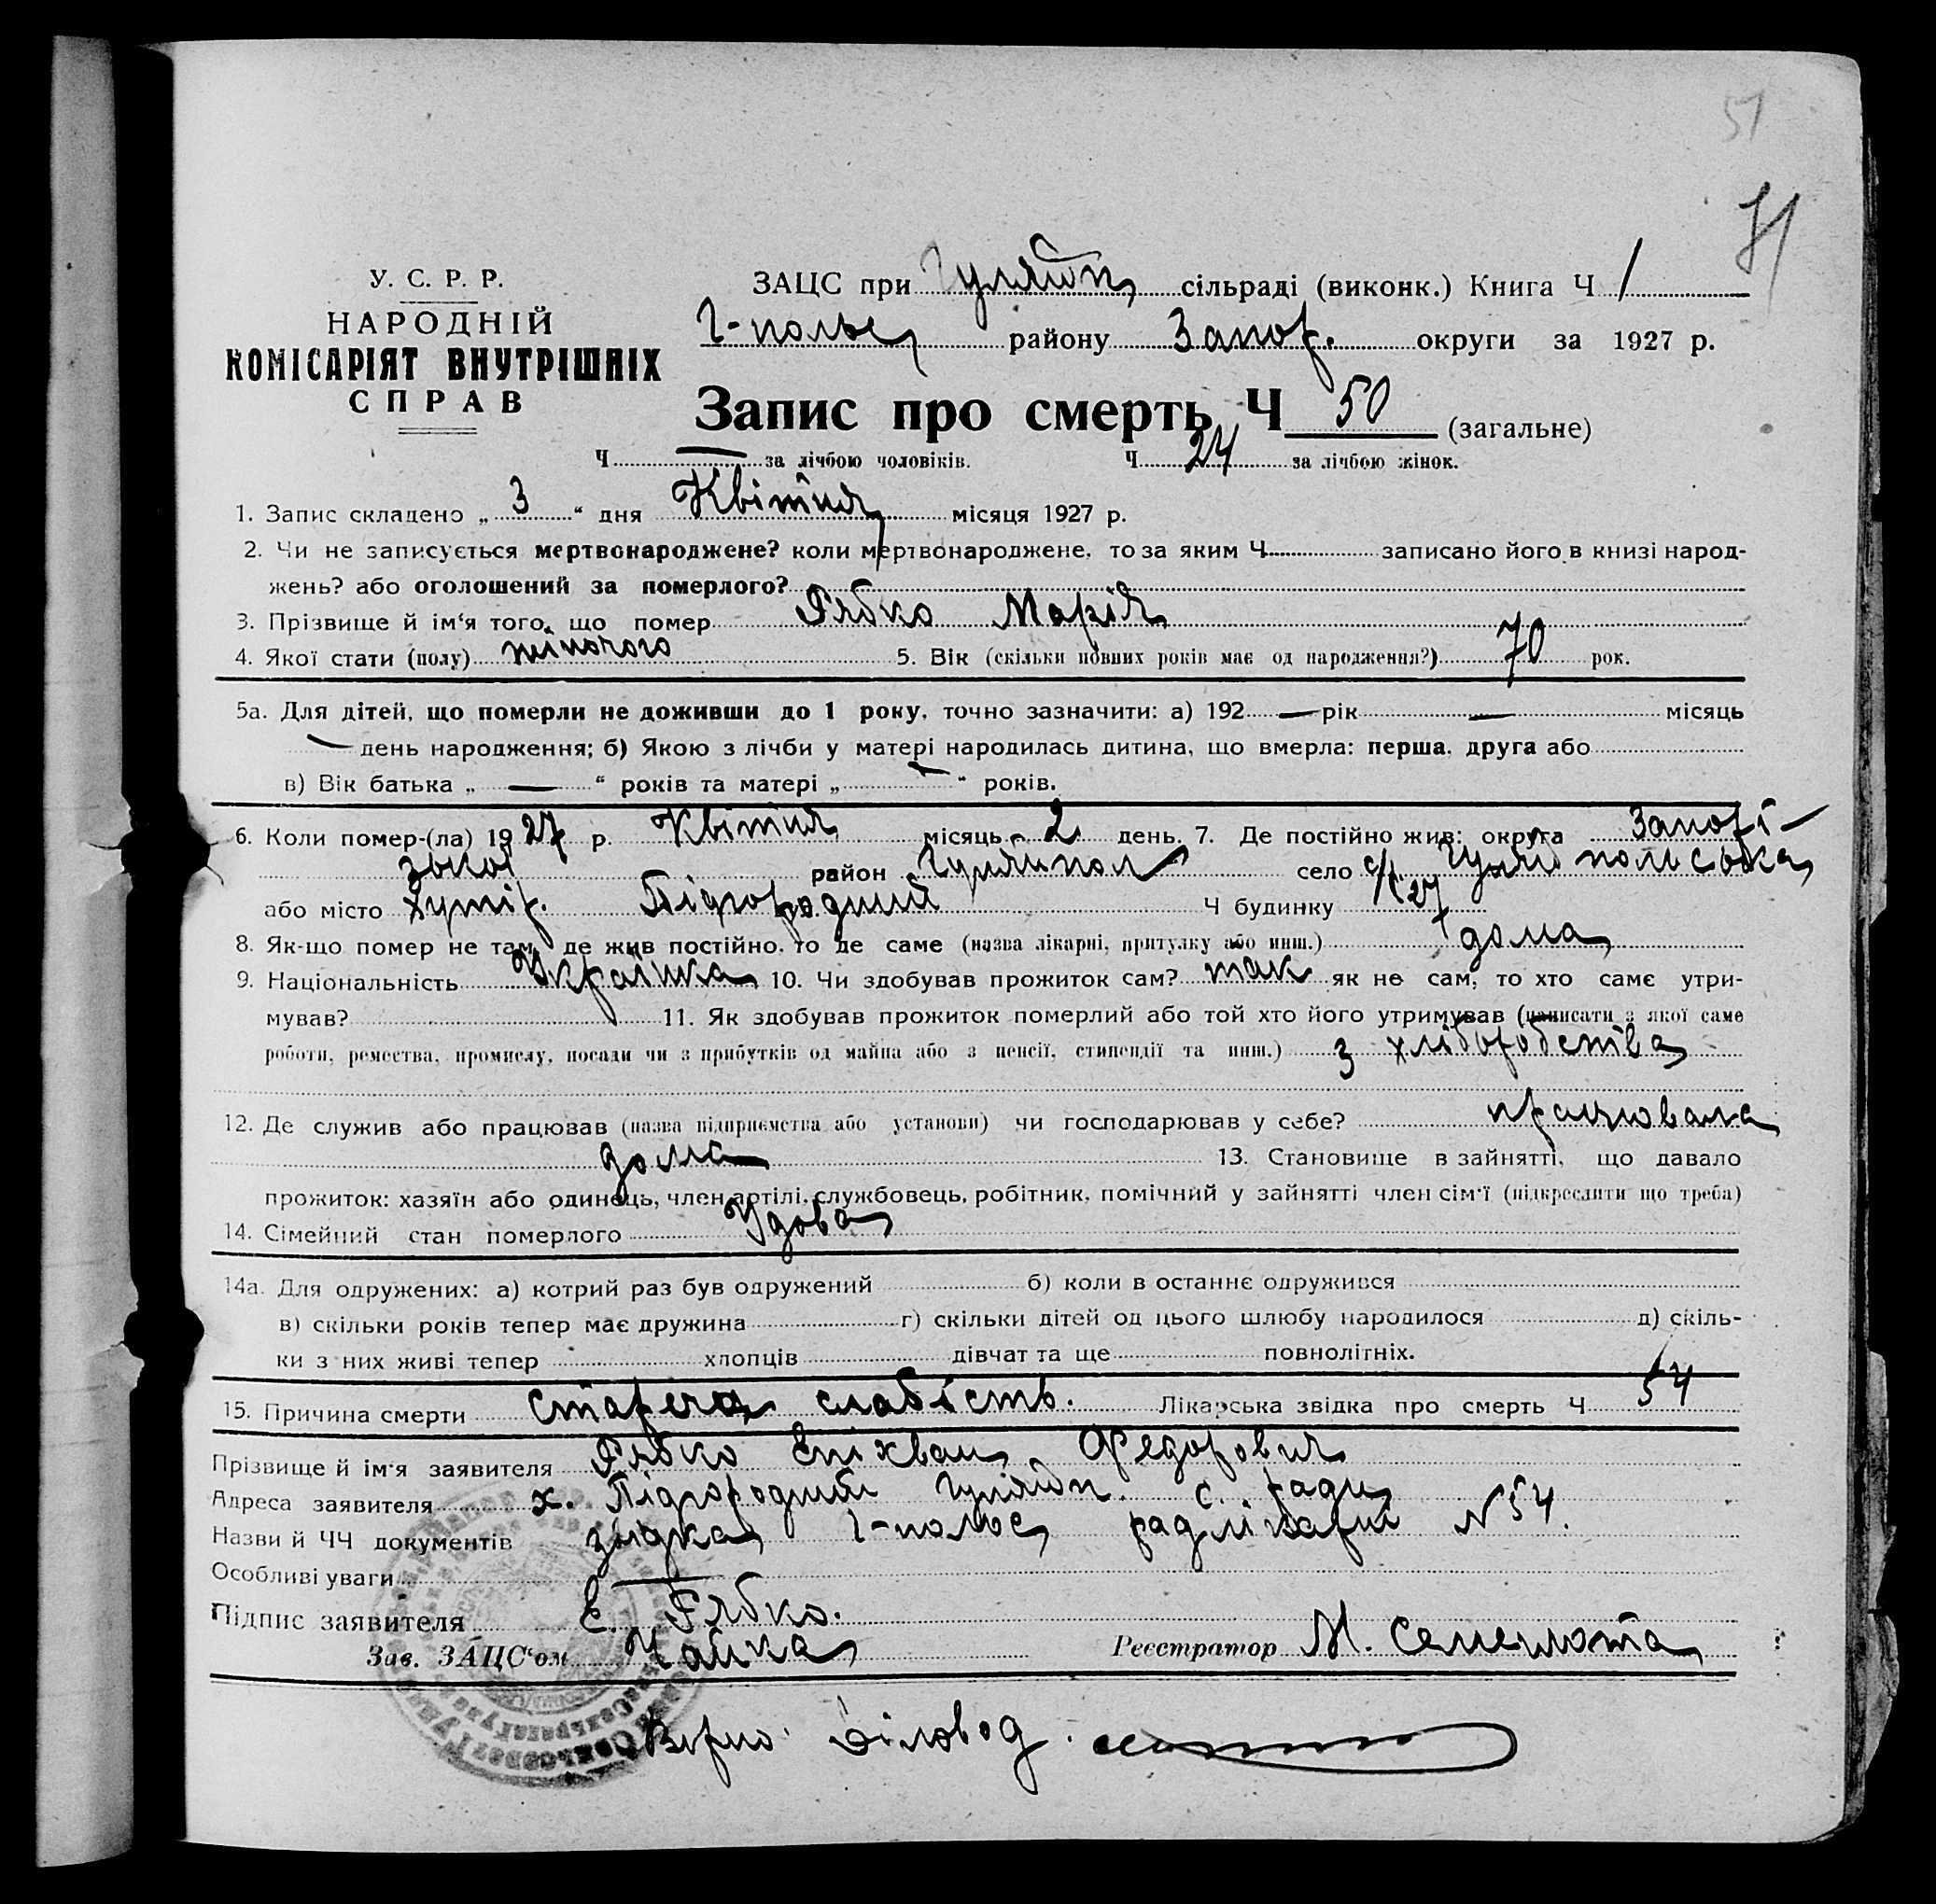 51
71
У. С. Р. Р.
НАРОДНІЙ
КОМІСАРІЯТ ВНУТРІШНІХ
СПРАВ
ЗАЦС при Гуляйп. сільраді (виконк.) Книга Ч 1
Г-польс району Запор. округи за 1927 р.
Запис про смерть Ч 50 (загальне)
Ч — за лічбою чоловіків. Ч 24 за лічбою жінок.
1. Запис складено „ 3 “ дня Квітня місяця 1927 р.
2. Чи не записується мертвонароджене? коли мертвонароджене, то за яким Ч записано його в книзі народ-
жень? або оголошений за померлого?
3. Прізвище й ім‘я того, що помер Рябко Марія
4. Якої стати (полу) жіночого 5. Вік (скільки повних років має од народження?) 70 рок.
5а. Для дітей, що померли не доживши до 1 року, точно зазначити: а) 192 — рік — місяць
— день народження; б) Якою з лічби у матері народилась дитина, що вмерла: перша, друга або
в) Вік батька „ — “ років та матері „ — “ років.
6. Коли помер-(ла) 1927 р. Квітня місяць 2 день. 7. Де постійно жив: округа Запорі-
зької район Гуляйпол село с/р Гуляйпольська
або місто хутір. Підгородний Ч будинку 27
8. Як-що помер не там, де жив постійно, то де саме (назва лікарні, притулку або инш.) дома
9. Національність Українка 10. Чи здобував прожиток сам? так як не сам, то хто саме утри-
мував? 11. Як здобував прожиток померлий або той хто його утримував (написати з якої саме
роботи, ремества, промислу, посади чи з прибутків од майна або з пенсії, стипендії та инш.) з хліборобства
12. Де служив або працював (назва підприємства або установи) чи господарював у себе? працювала
дома 13. Становище в зайнятті, що давало
прожиток: хазяїн або одинець, член артілі, службовець, робітник, помічний у зайнятті член сім‘ї (підкреслити що треба)
14. Сімейний стан померлого Удова
14а. Для одружених: а) котрий раз був одружений б) коли в останнє одружився
в) скільки років тепер має дружина г) скільки дітей од цього шлюбу народилося д) скіль-
ки з них живі тепер хлопців дівчат та ще повнолітніх.
15. Причина смерти Стареча слабість. Лікарська звідка про смерть Ч 54
Прізвище й ім‘я заявителя Рябко Епіхван Федорович
Адреса заявителя х. Підгородній Гуляйп. с. ради
Назви й ЧЧ документів звідка Г-польс райлікарні № 54.
Особливі уваги —
Підпис заявителя Е. Рябко.
Зав. ЗАЦС‘ом Чайка Реєстратор М. Семенюта
Вірно: Діловод